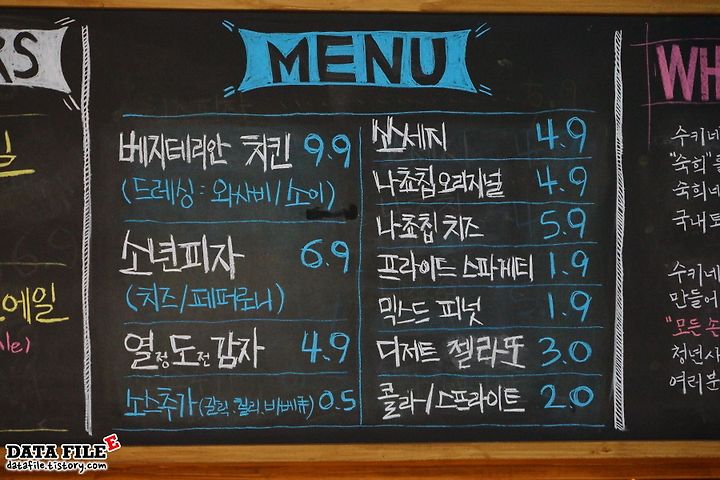 RS
MENU
WH
베지테리안 치킨 9.9
(드레싱 : 와사비/소이)
소년피자 6.9
(치즈/페퍼로니)
열정도전감자 4.9
소스추가(갈릭.칠리.바베큐) 0.5
소세지 4.9
나쵸칩 오리지널 4.9
나쵸칩 치즈 5.9
프라이드 스파게티 1.9
믹스드 피넛 1.9
디저트 젤라또 3.0
콜라/스프라이트 2.0
에일
ale)
수키네
"숙희"를
숙희네
국내되
수키네
만들어
"모든 손
청년사
여러분
DATA FILE
datafile.tistory.com